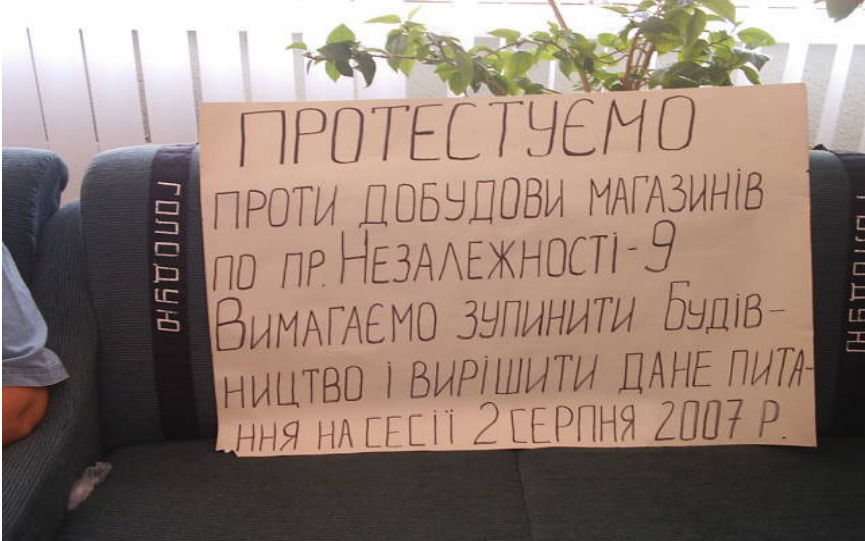 ПРОТЕСТУЄМО
ПРОТИ ДОБУДОВИ МАГАЗИНІВ
ПО ПР. НЕЗАЛЕЖНОСТІ-9
ВИМАГАЄМО ЗУПИНИТИ БУДІВ-
НИЦТВО І ВИРІШИТИ ДАНЕ ПИТА-
ННЯ НА СЕСІЇ 2 СЕРПНЯ 2007 Р.
ГОЛОДУЮ
ГОЛОДУЮ